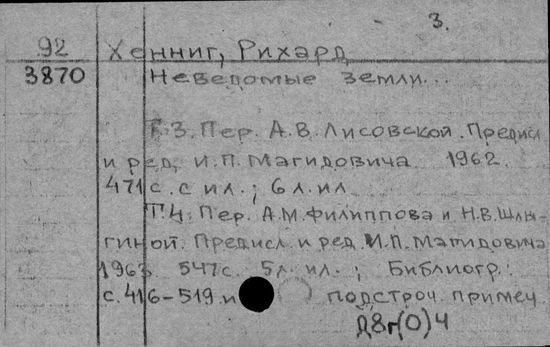 3.
92 Хенниг, Рихард
3870 Неведомые земли...
Т.3. Пер. А.В. Лисовской. Предисл.
и ред. И.П. Магидовича 1962.
471 с. с ил.; 6 л. ил.
Т.4. Пер. А.М. Филиппова и Н.В. Шлы-
гиной. Предисл. и ред. И.П. Магидовича
1963. 547 с. 5 л. ил.; Библиогр.:
с. 416-519 и подстроч. примеч.
Д8г(0)4